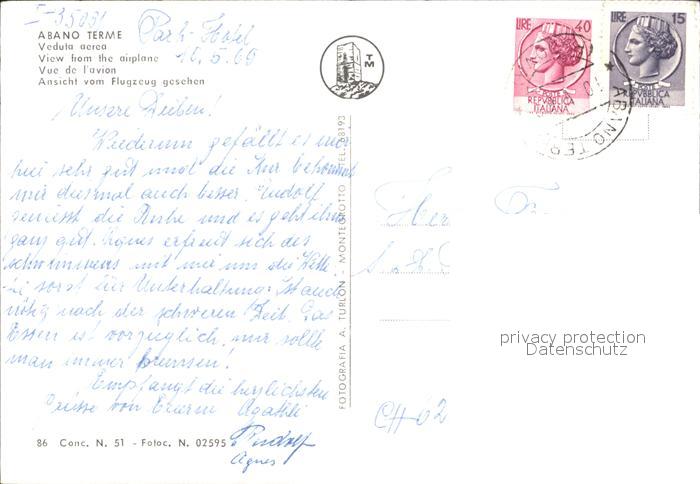 I-35031
ABANO TERME
Veduta aerea
View from the airplane
Vue de l'avion
Ansicht vom Flugzeug gesehen
Park-Hotel
TM
LIRE 40
REPVBBLICA
ITALIANA
LIRE 15
REPVBBLICA
ITALIANA
ABANO TERME
Unsere Lieben!
Wiederum gefällt es mir
hier sehr gut und die Kur bekommt
mir diesmal auch besser. Rudolf
geniesst die Ruhe und es geht ihm
ganz gut. Agnes erfreut sich des
schwimmens mit mir um die Wette
sorgt für Unterhaltung. Ist auch
nötig nach der schweren Zeit. Das
Essen ist vorzüglich, nur sollte
man immer bremsen!
Empfangt die herzlichsten
Grüsse von Eueren Agathli
Rudolf
Agnes
86 Conc. N. 51 - Fotoc. N. 02595
FOTOGRAFIA A. TURLON - MONTEGROTTO - TEL. 78193
privacy protection
Datenschutz
CH-62